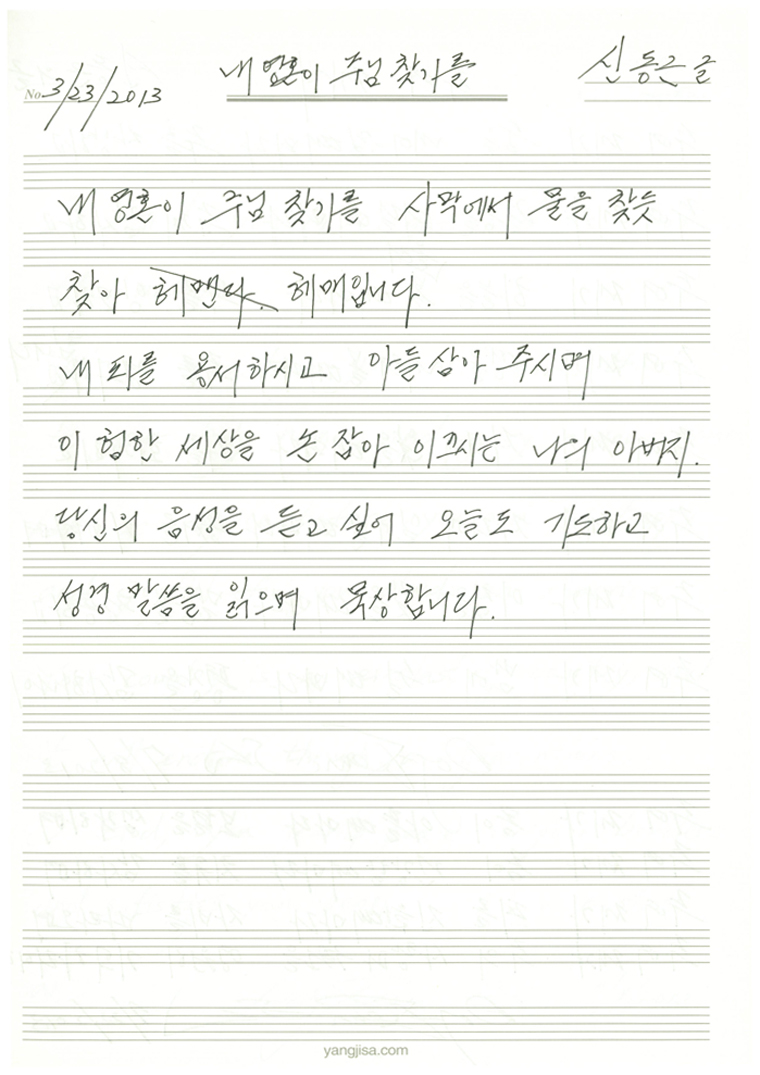 No. 3/23/2013 내 영혼이 주님 찾기를 신동근 글
내 영혼이 주님 찾기를 사막에서 물을 찾듯
찾아 헤맨다. 헤매입니다.
내 죄를 용서하시고 아들삼아 주시며
이 험한 세상을 손 잡아 이끄시는 나의 아버지.
당신의 음성을 듣고 싶어 오늘도 기도하고
성경 말씀을 읽으며 묵상합니다.
yangjisa.com